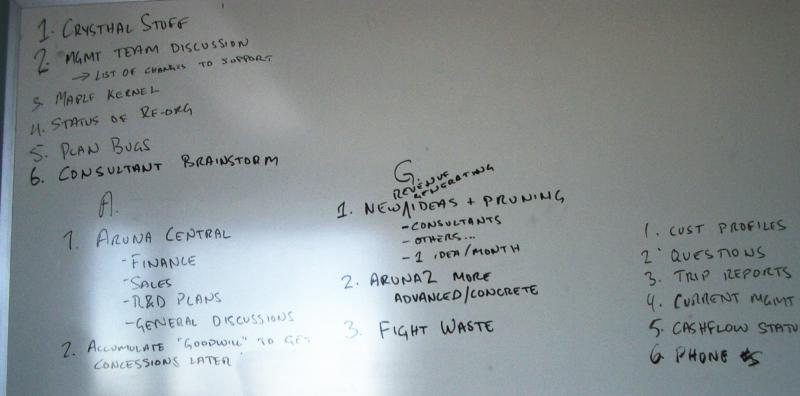 1. CRYSTHAL STUFF
2. MGMT TEAM DISCUSSION
→ LIST OF CHANGES TO SUPPORT
3. MAPLE KERNEL
4. STATUS OF RE-ORG
5. PLAN BUGS
6. CONSULTANT BRAINSTORM
A.
1. ARUNA CENTRAL
- FINANCE
- SALES
- R&D PLANS
- GENERAL DISCUSSIONS
2. ACCUMULATE "GOODWILL" TO GET
CONCESSIONS LATER
G.
REVENUE
GENERATING
1. NEW/IDEAS + PRUNING
- CONSULTANTS
- OTHERS...
- 1 IDEA/MONTH
2. ARUNA2 MORE
ADVANCED/CONCRETE
3. FIGHT WASTE
1. CUST PROFILES
2. QUESTIONS
3. TRIP REPORTS
4. CURRENT MGMT
5. CASHFLOW STATU
6. PHONE #S